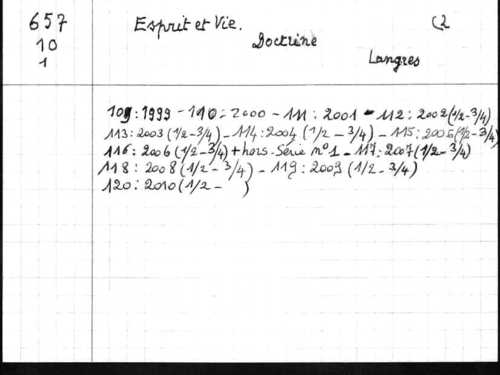 657 Esprit et Vie. (2
10 Doctrine
1 Langres
109:1999 - 110:2000 - 111:2001 - 112:2002 (1/2-3/4)
113:2003 (1/2-3/4) - 114:2004 (1/2-3/4) - 115:2005 (1/2-3/4)
116:2006 (1/2-3/4) + hors-Série n°1 - 117:2007 (1/2-3/4)
118:2008 (1/2-3/4) - 119:2009 (1/2-3/4)
120:2010 (1/2- )